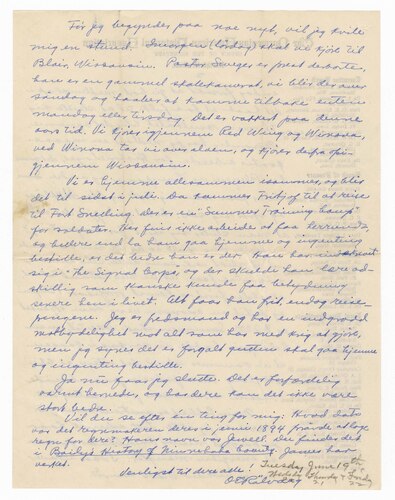 Før jeg begynder paa noe nyt, vil jeg hvile
mig en stund. Imorgen (lørdag) skal vi kjøre til
Blair, Wisconsin. Pastor Sveger er prest derborte,
han er en gammel skolekamerat, vi blir der over
søndag og haaber at komme tilbake enten
mandag eller tirsdag. Det er vakkert paa denne
aars tid. Vi kjører igjennem Red Wing og Winona,
ved Winona tar vi over elven, og kjører derfra op
gjennem Wisconsin.
Vi er hjemme allesammen isammen, og blir
det til sidst i juli. Da kommer Fritjof til at reise
til Fort Snelling. Der er en "Summer Training Camp"
for soldater. Her fins ikke arbeide at faa
og hellere end la ham gaa hjemme og ingenting
bestille, er det bedre han er der. Han har
sig i "the Signal Corps, og der skulde han lære ad-
skillig som kanske kunde faa betydning
senere hen i livet. Alt faar han frit, endog reise-
pengene. Jeg er fredsmand og har en indgroed
motbydelighet mot alt som har med krig at gjøre,
men jeg synes det er forgalt gutten skal gaa hjemme
og ingenting bestille.
Ja nu faar jeg slutte. Det er forferdelig
varmt hernede, og hos dere kan det ikke være
stort bedre.
Vil du se efter en ting for mig: Hvad dato
var det regnmakeren deres i juni 1894 prøvde at lage
regn for dere? Hans navn var Jewell. Du finder det
i Bailey's History of Minnehaha County. James har
verket.
Venligst til dere alle!
Tuesday June 19th
OE Rølvaag